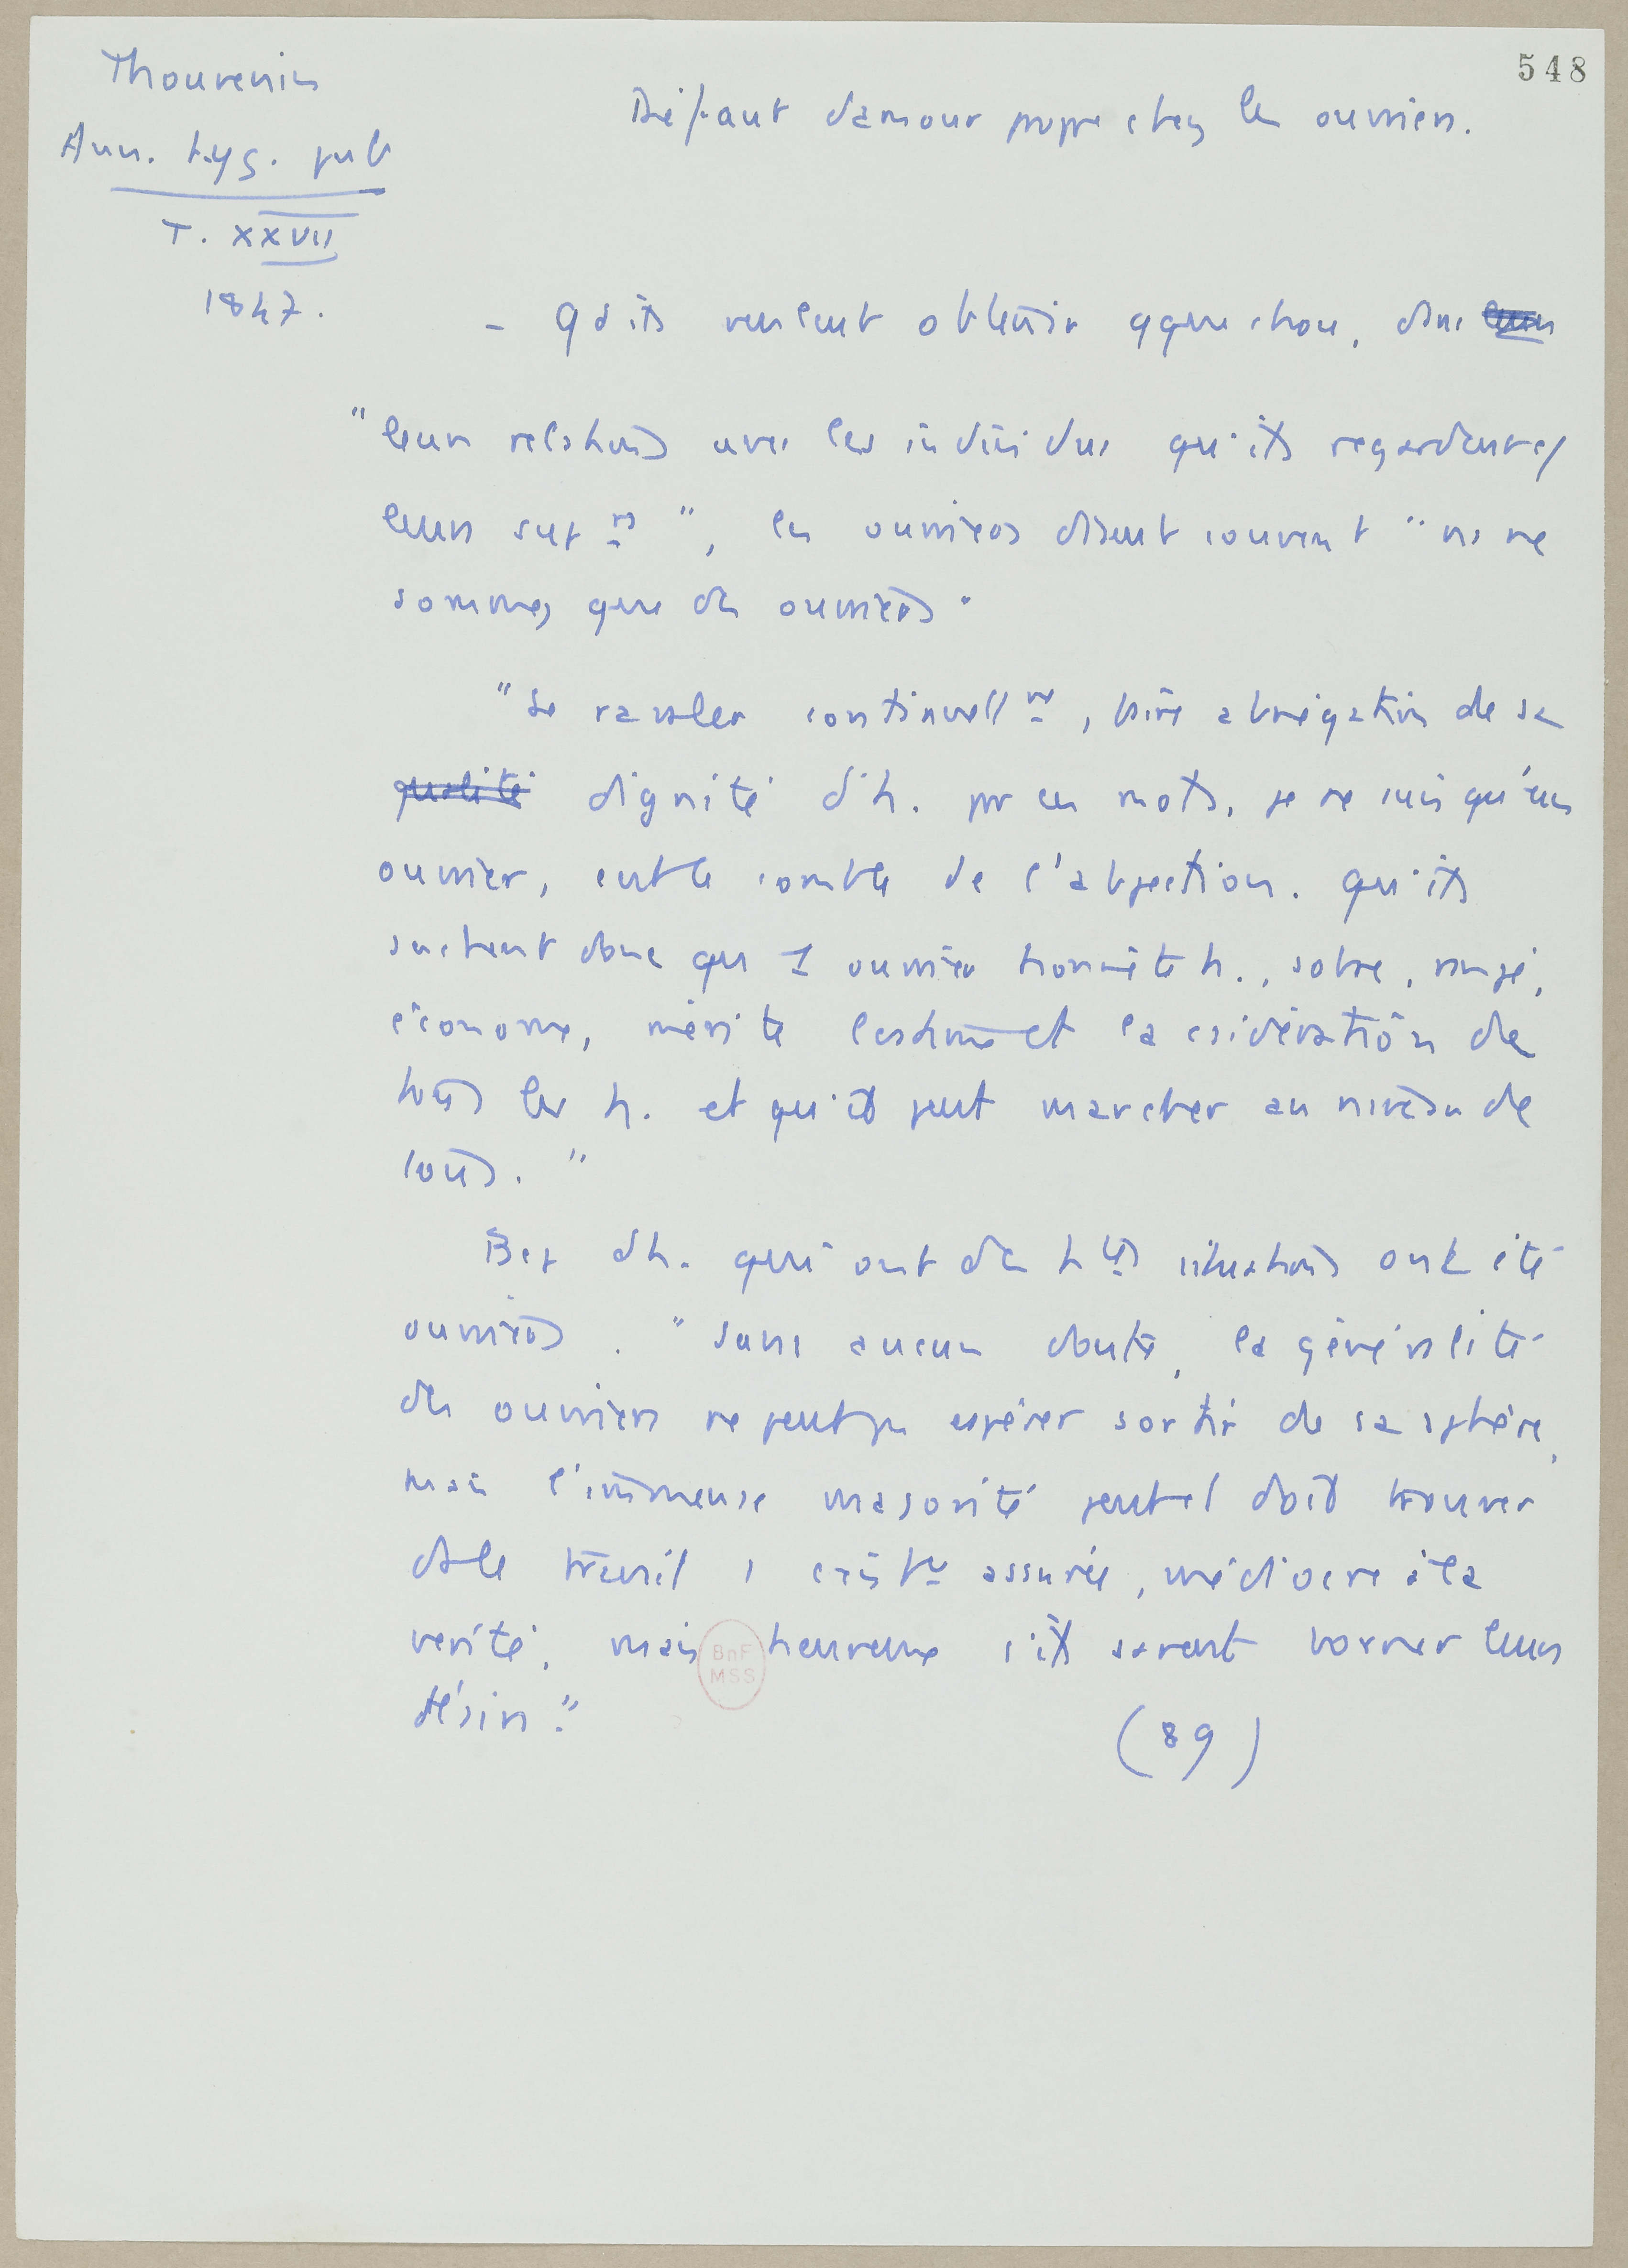 548
Thouvenin
Ann. hyg. pub
T. XXVII
1847.
Défaut d'amour propre chez les ouvriers.
- Qd ils veulent obtenir qque chose, ds
"leurs relations avec les individus qu'ils regardent c/
leurs suprs", les ouvriers disent souvent "ns ne
sommes que des ouvriers"
"Se ravaler continuellmt, faire abnégation de sa
qualité dignité d'h. par ces mots, je ne suis qu'un
ouvrier, est le comble de l'abjection. Qu'ils
sachent donc que 1 ouvrier honnête h., sobre, rangé,
économe, mérite l'estime et la csidération de
tous les h. et qu'il peut marcher au niveau de
tous."
Bcp d'h. qui ont des htes situations ont été
ouvriers. "Sans aucun doute, la généralité
des ouvriers ne peut pas espérer sortir de sa sphère,
mais l'immense majorité peut et doit trouver
ds le travail 1 existce assurée, médiocre à la
vérité, mais heureuse s'ils savent borner leurs
désirs."
(89)
BnF
MSS